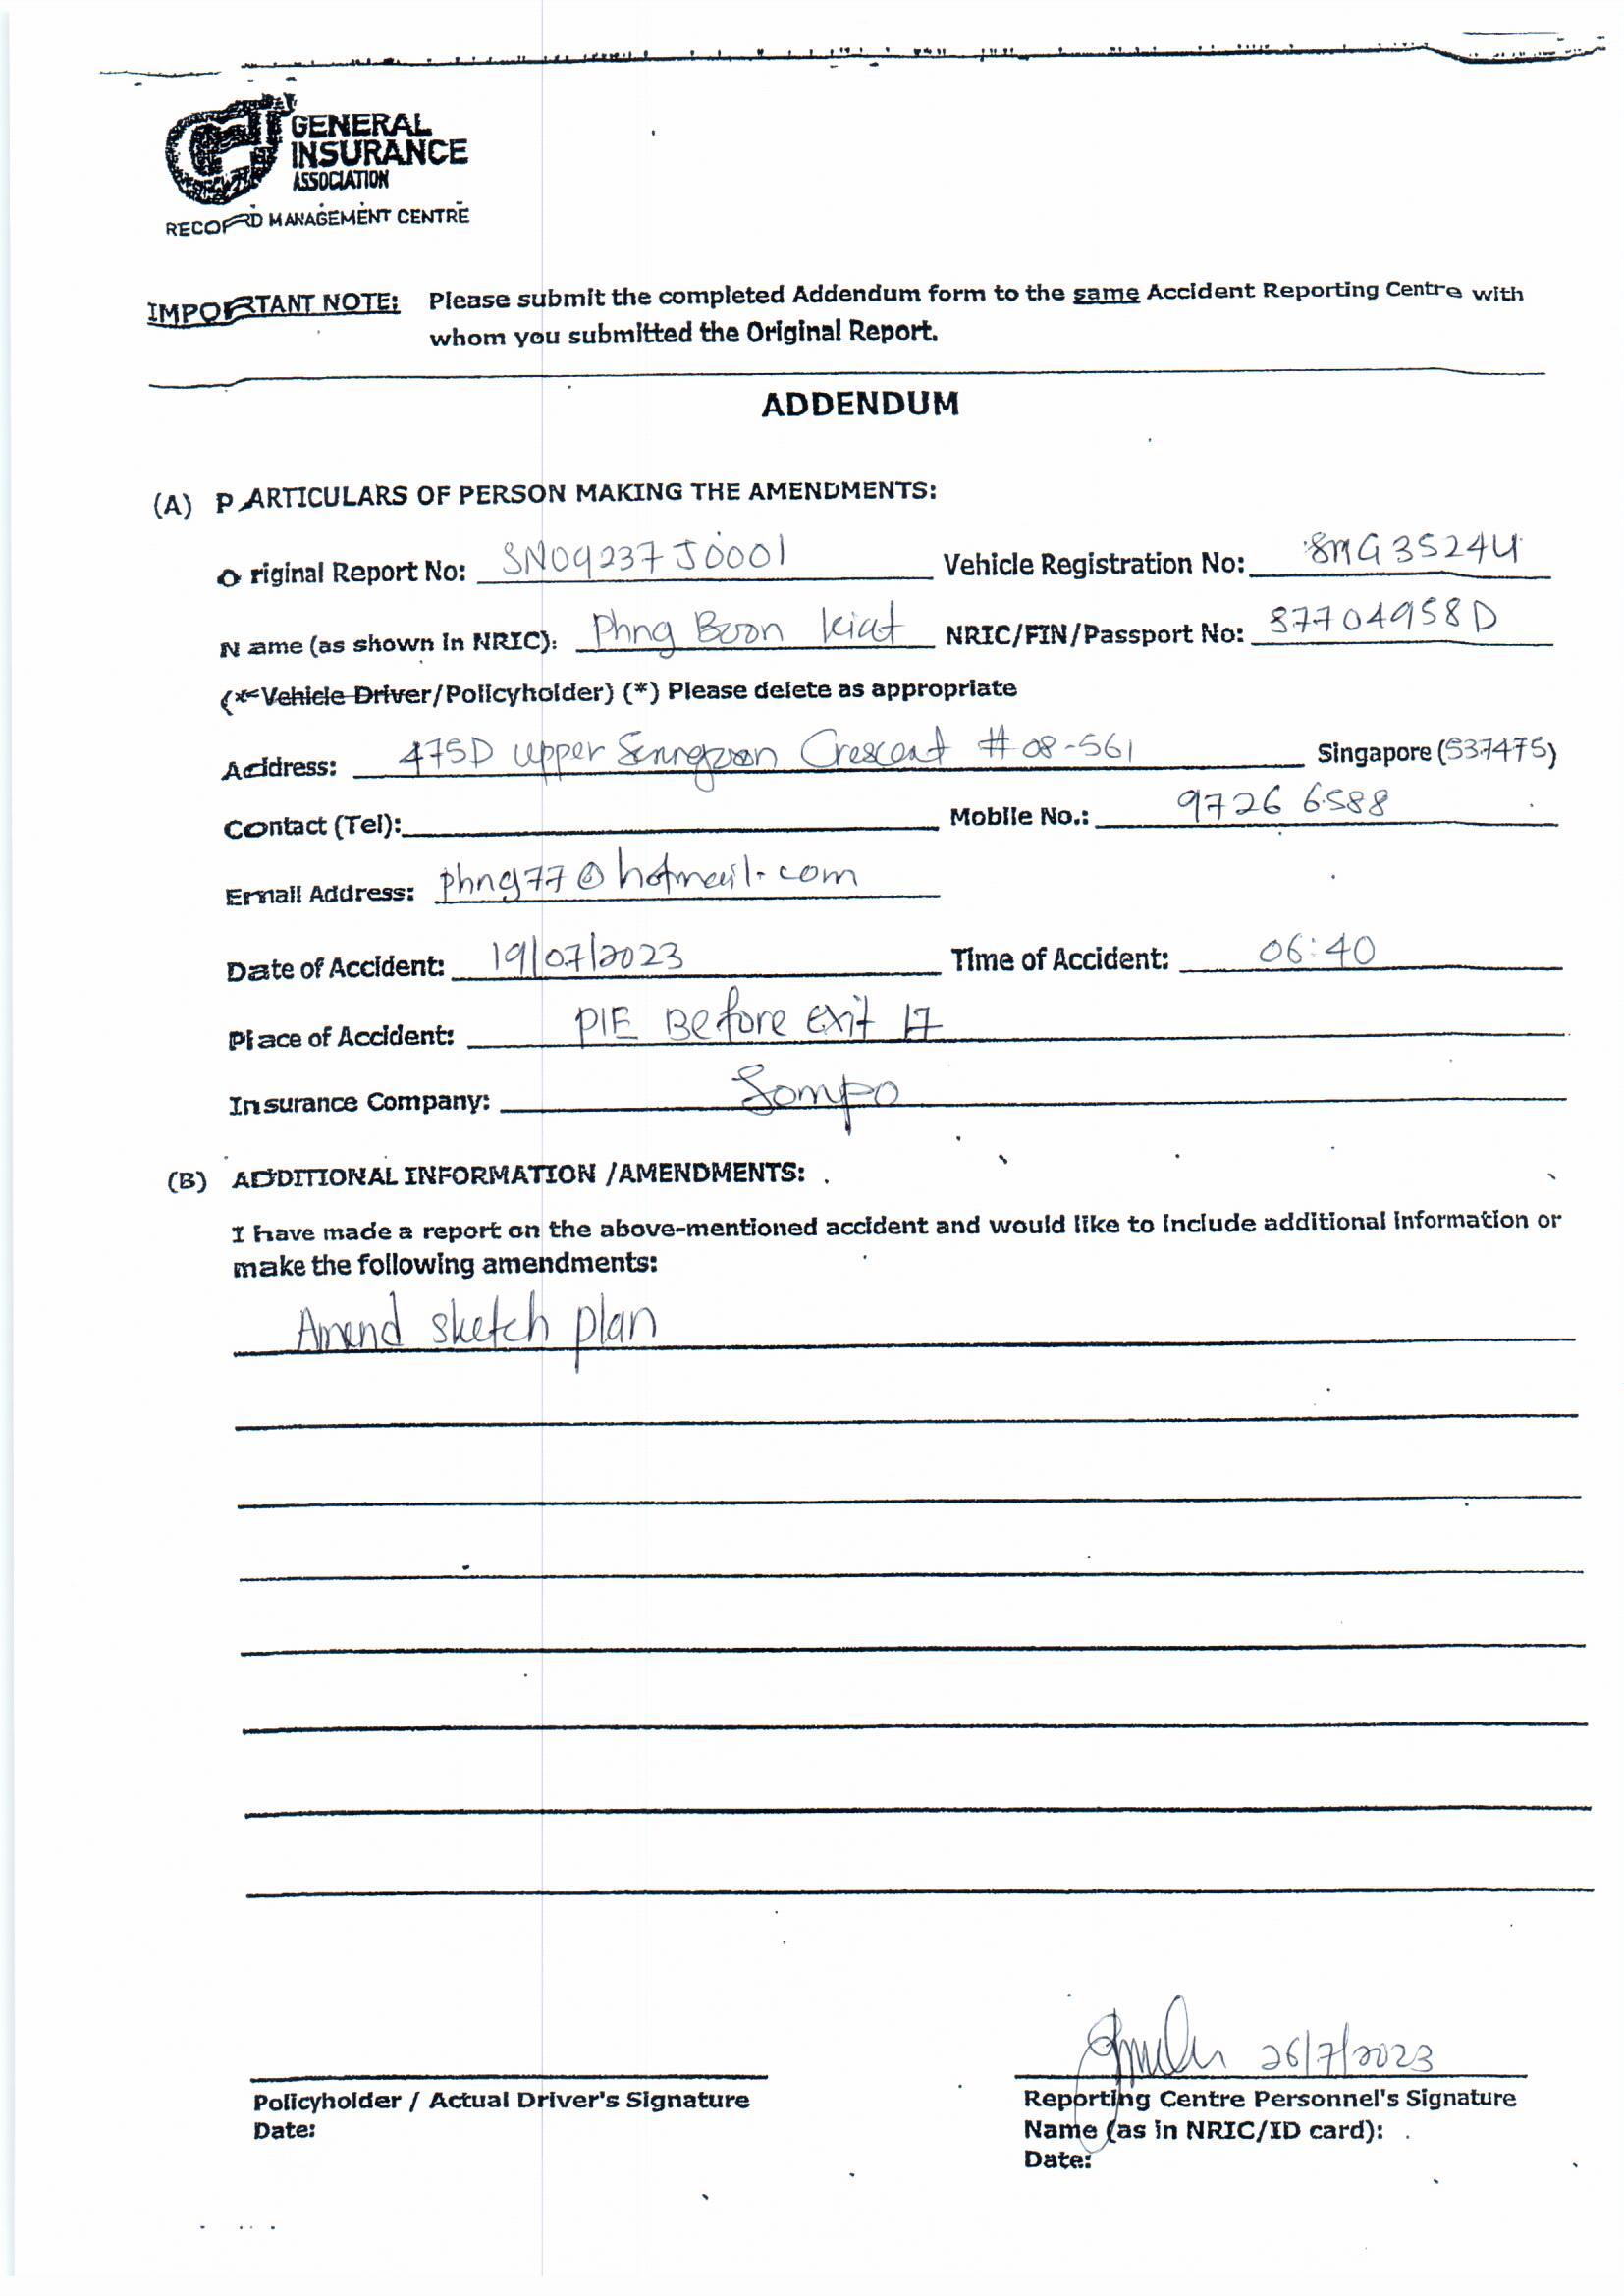 GENERAL
INSURANCE
ASSOCIATION
RECORD MANAGEMENT CENTRE
IMPORTANT NOTE: Please submit the completed Addendum form to the same Accident Reporting Centre with
whom you submitted the Original Report.
ADDENDUM
(A) PARTICULARS OF PERSON MAKING THE AMENDMENTS:
Original Report No: SN09237J0001 Vehicle Registration No: SMG3524U
Name (as shown in NRIC): Phng Boon kiat NRIC/FIN/Passport No: S7704958D
(*Vehicle Driver/Policyholder) (*) Please delete as appropriate
Address: 475D upper Serangoon Crescent #08-561 Singapore (537475)
Contact (Tel): Mobile No.: 9726 6588
Email Address: phng77@hotmail.com
Date of Accident: 19/07/2023 Time of Accident: 06:40
Place of Accident: PIE Before exit 17
Insurance Company: Sompo
(B) ADDITIONAL INFORMATION /AMENDMENTS:
I have made a report on the above-mentioned accident and would like to include additional information or
make the following amendments:
Amend sketch plan
26/7/2023
Policyholder / Actual Driver's Signature Reporting Centre Personnel's Signature
Date: Name (as in NRIC/ID card):
Date: